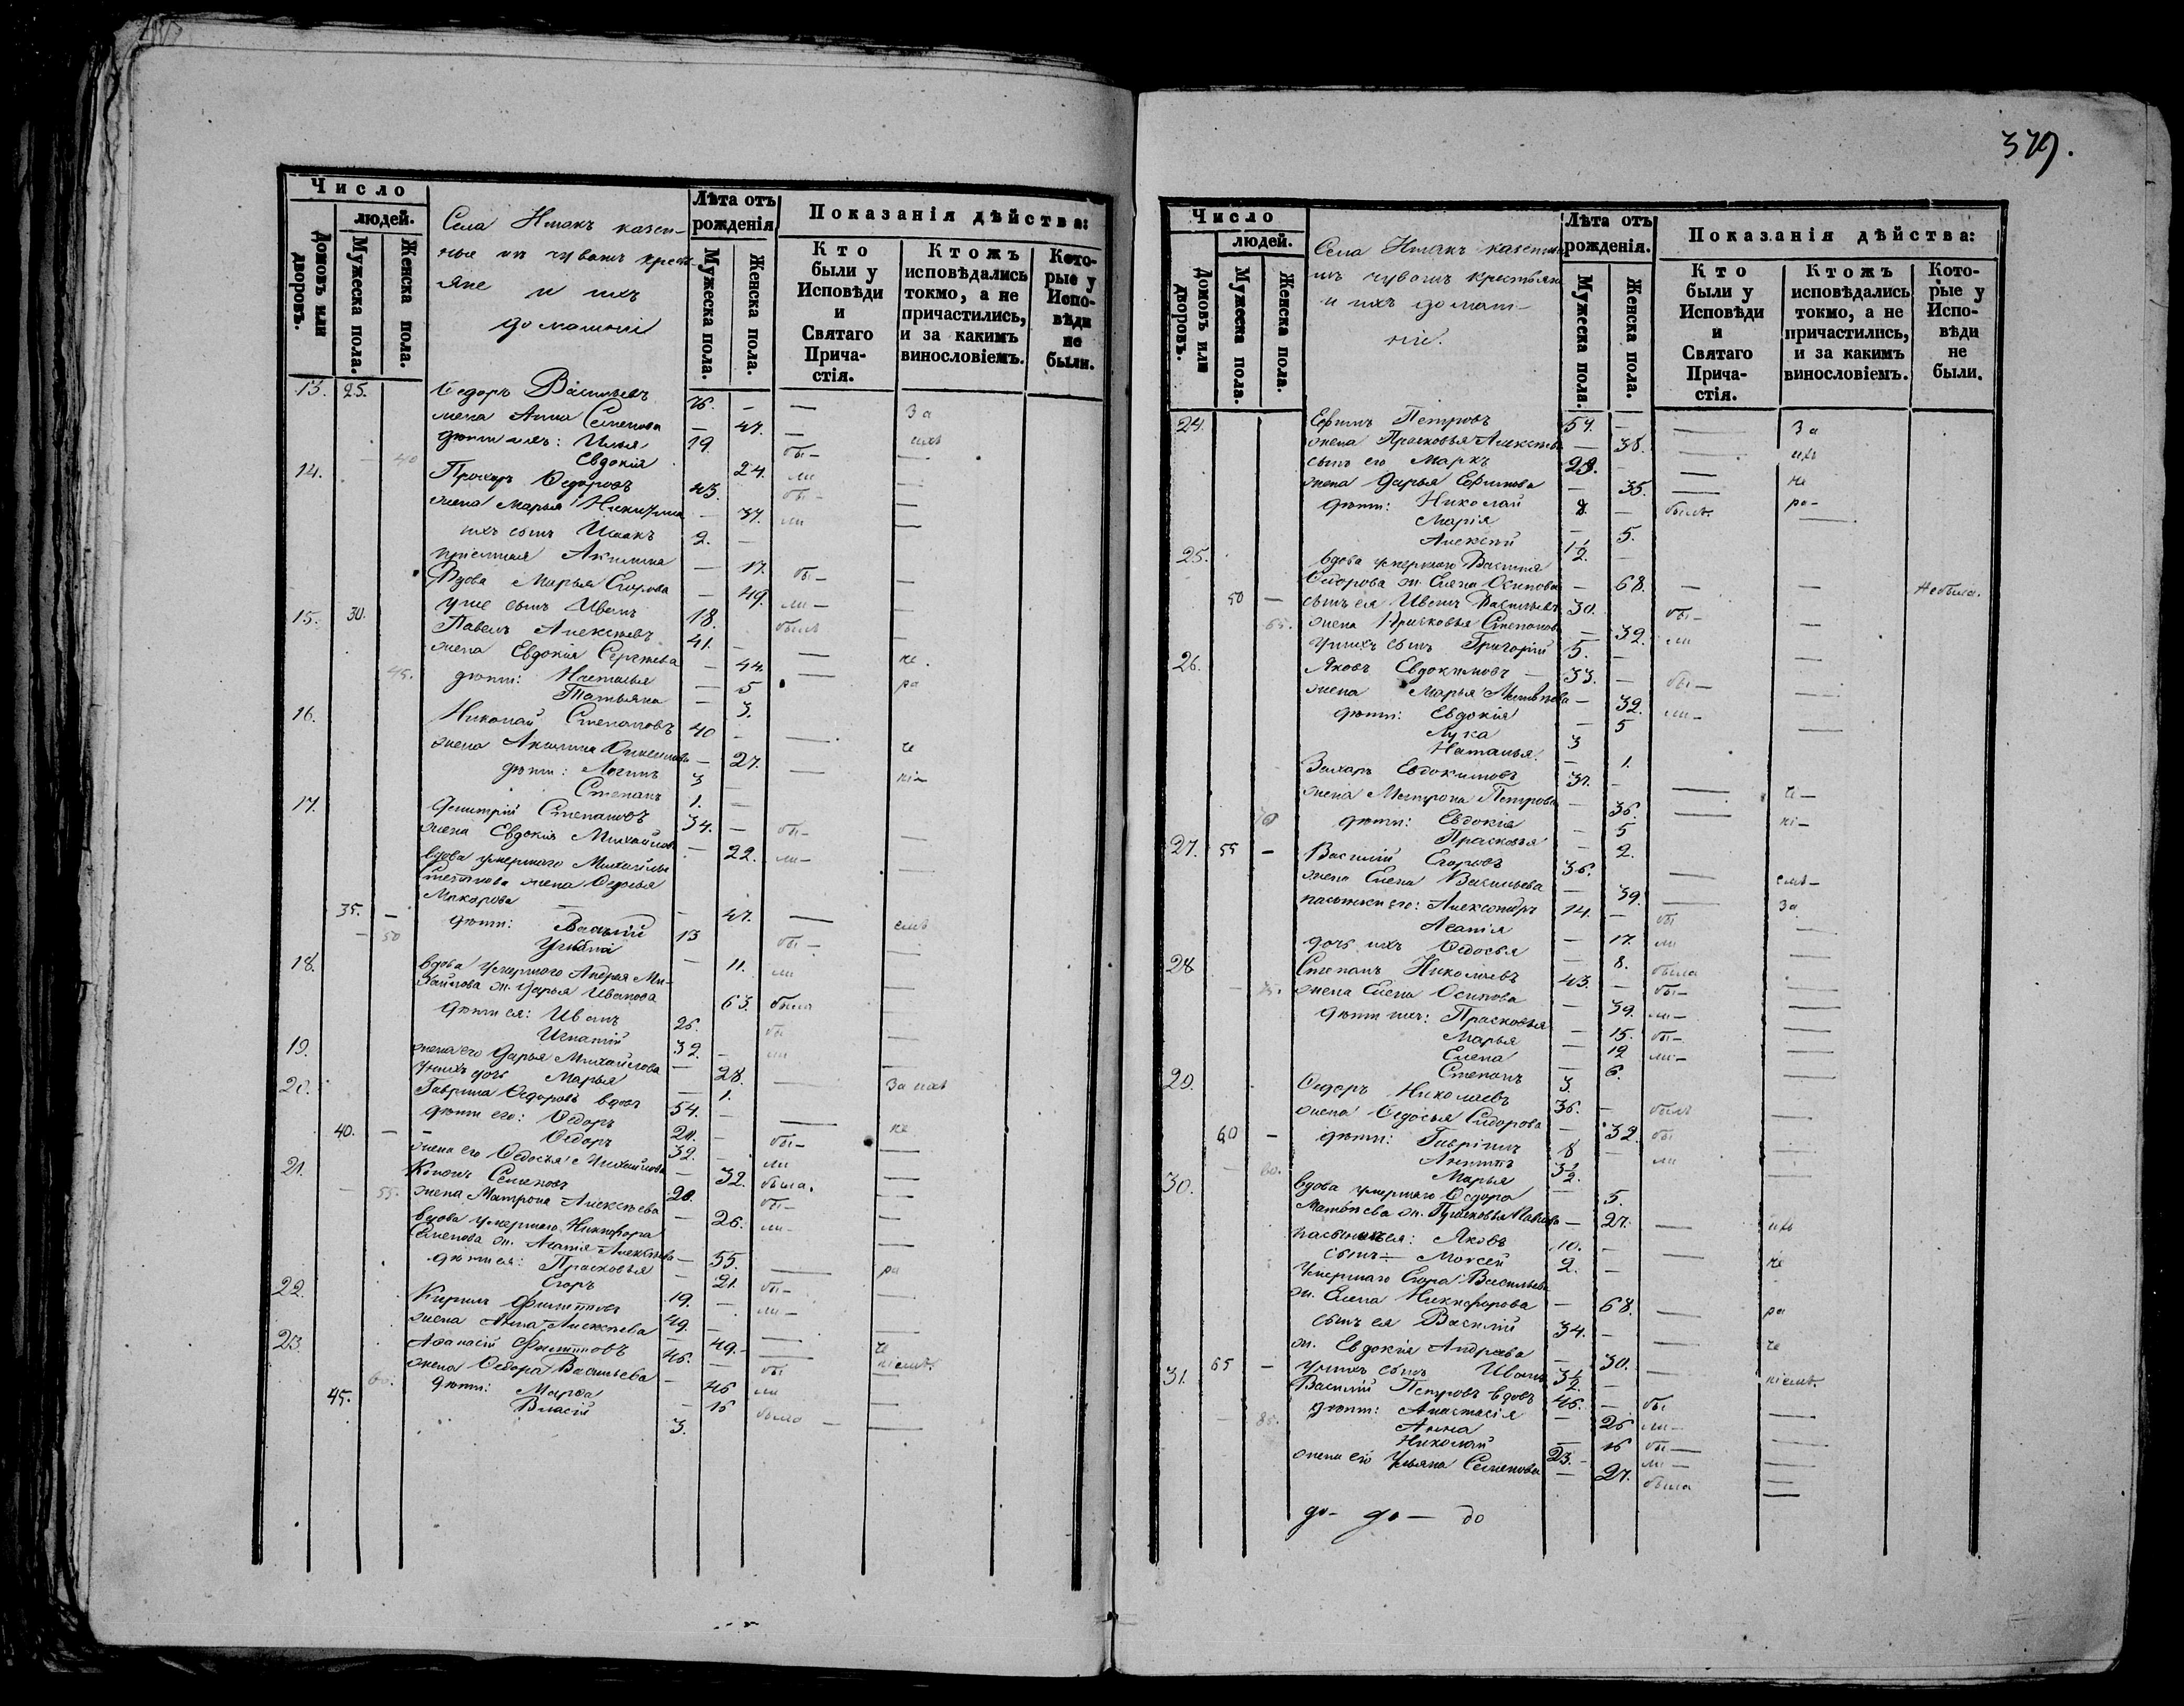 379.
Число
людей.
Домовъ или дворовъ.
Мужеска пола.
Женска пола.
Села казен-
ные изъ чувашъ кресть-
яне и ихъ
домашніи
Лѣта отъ рожденія
Мужеска пола.
Женска пола.
Показанія дѣйства:
Кто были у Исповѣди и Святаго Прича-стія.
Ктожъ исповѣдались токмо, а не причастились, и за какимъ винословіемъ.
Кото-рые у Испо-вѣди не были.
13. 25. Ѳедоръ Васильевъ — —
жена Анна Семенова — 47. — За
дѣти ихъ: Илья 19. бы- ихъ
40 Евдокія 24. ли —
14. Прохоръ Ѳедоровъ 43. бы- —
жена Марья Никитина — 37. ли —
ихъ сынъ Исаакъ 2. —
пріемная Акилина — 17. бы- —
Вдова Марья Егорова — 49. ли- —
у нее сынъ Иванъ 18. былъ —
15. 30. Павелъ Алексѣевъ 41. — —
жена Евдокія Сергѣева — 44. — не
45. дѣти: Наталья — 5 ра
Татьяна — 3.
16. Николай Степановъ 40 — —
жена Акилина — 27. — че
дѣти: Логинъ 3 ні-
Степанъ 1. —
17. Димитрій Степановъ 34. — бы- —
жена Евдокія Михайлова — 22. ли- —
вдова умершаго Михайлы
Степанова жена Ѳедосья
Макарова
35. — — 47. — емъ
50 дѣти: Василій 13 бы- —
— 11. ли —
18. вдова умершаго Андрея Ми-
хайлова ж. Дарья Иванова 63. была —
дѣти ея: Иванъ 26. бы —
Игнатій 32. — ли —
19. жена его Дарья Михайлова — 28. — За ихъ
у нихъ дочь Марья — 1.
20. Гаврила Ѳедоровъ вдовъ 54. — — не
дѣти его: Ѳедоръ 20. — бы- —
40. — Ѳедоръ 32. ли —
жена его Ѳедосья Михайлова — 32. была. —
21. Кононъ Семеновъ 20. бы- —
55. жена Матрона Алексѣева — 26. ли- —
вдова умершаго Никифора
Семенова ж. Агафія Алексѣева — 55. — ра
дѣти ея: Прасковья — 21. бы- —
Егоръ 19. — ли- —
22. Кирилъ Филипповъ 49. — — че
жена Анна Алексѣева — 49. — ніемъ.
23. Аѳанасій Филипповъ 46. — бы —
60. жена Ѳедора Васильева — 46 ли —
45. дѣти: Марѳа — 16 было —
Власій 3.
Число
людей.
Домовъ или дворовъ.
Мужеска пола.
Женска пола.
Села казенные
изъ чувашъ крестьяне
и ихъ домаш-
ніи.
Лѣта отъ рожденія.
Мужеска пола.
Женска пола.
Показанія дѣйства:
Кто были у Исповѣди и Святаго Прича-стія.
Ктожъ исповѣдались токмо, а не причастились, и за какимъ винословіемъ.
Кото-рые у Испо-вѣди не были.
24. Ефимъ Петровъ 57. — — За
жена Прасковья Алексѣева — 38. — ихъ
сынъ его Маркъ 28. — — не
жена Дарья Ефимова — 35. — ра-
дѣти: Николай 8. — былъ. —
Марія — 5.
Алексѣй 1½.
25. вдова умершаго Василія
Ѳедорова ж. Елена Осипова — 68. — — Небыла.
50 — сынъ ея Иванъ Васильевъ 30. бы- —
65. жена Прасковья Степанова — 32. ли —
у нихъ сынъ Григорій 5. —
26. Яковъ Евдокимовъ — 33. — бы- —
жена Марья Матвѣева — 32. ли- —
дѣти: Евдокія — 5
Лука 3
Наталья. — 1.
Захаръ Евдокимовъ 37. — — че-
жена Матрона Петрова — 36. — ні-
70 дѣти: Евдокія — 5
Прасковья — 2.
27. 55 — Василій Егоровъ 36. — емъ-
жена Елена Васильева — 39. — За
пасынки его: Александръ 14. — бы —
Агафія — 17. ли —
дочь ихъ Ѳедосья — 8. была —
28 Степанъ Николаевъ 43. — бы- —
75. жена Елена Осипова — 39. ли- —
дѣти ихъ: Прасковья — 15. бы- —
Марья — 12 ли- —
Елена — 6.
Степанъ 3
29. Ѳедоръ Николаевъ 36. — былъ —
жена Ѳедосья Сидорова — 32. бы —
60 — дѣти: Гавріилъ 8 — ли —
80. 3½.
Марья — 5.
30. вдова умершаго Ѳедора
Матвѣева ж. Прасковья — 27. — ихъ
пасынокъ ея: Яковъ 10. — — не
сынъ — Моисей 2. —
Умершаго Егора Васильева
ж. Елена Никифорова — 68. — ра
сынъ ея Василій 34. — — че
ж. Евдокія Андреева — 30. — ніемъ.
65 — у нихъ сынъ Иванъ 3½. —
31. Василій Петровъ вдовъ 46. — бы —
85. дѣти: Анастасія — 26 ли- —
Анна — 16 бы- —
Николай 23. — ли —
жена его Ульяна Семенова — 27. была —
до- до — до